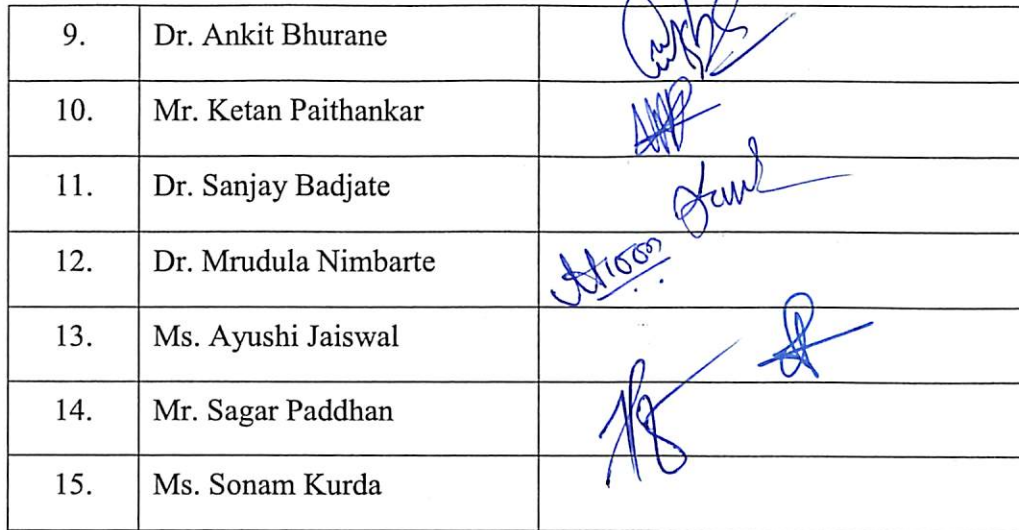 9. Dr. Ankit Bhurane
10. Mr. Ketan Paithankar
11. Dr. Sanjay Badjate
12. Dr. Mrudula Nimbarte
13. Ms. Ayushi Jaiswal
14. Mr. Sagar Paddhan
15. Ms. Sonam Kurda